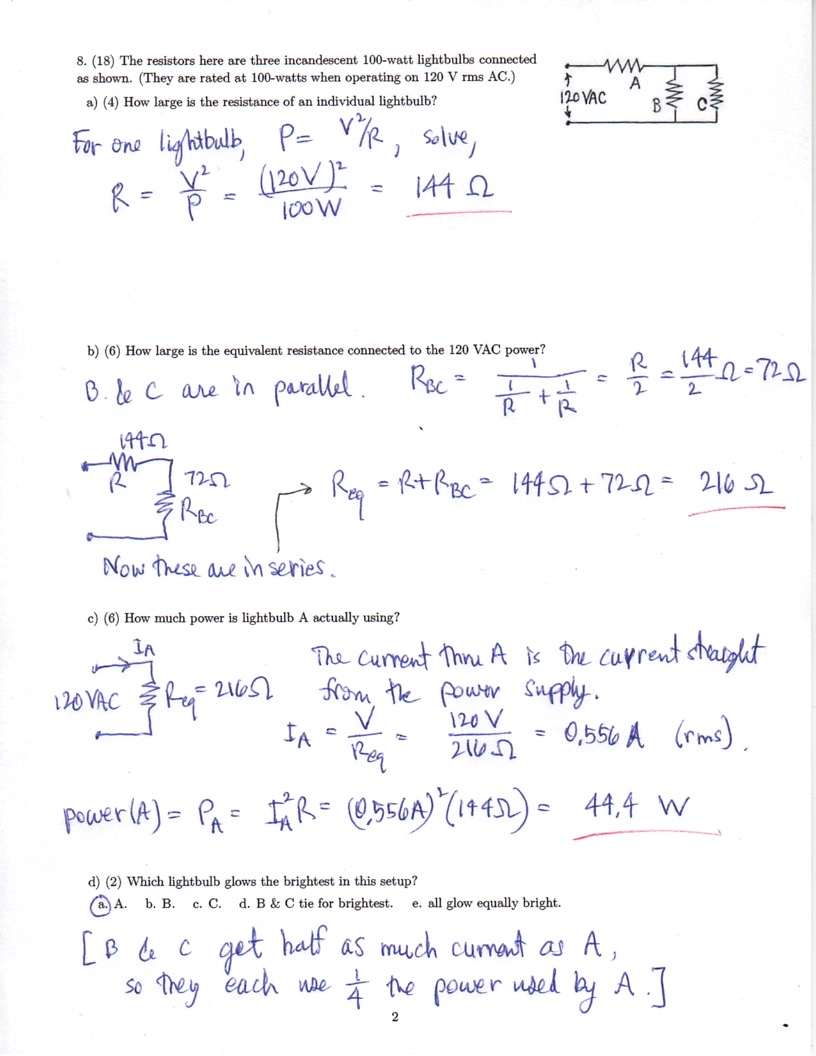 8. (18) The resistors here are three incandescent 100-watt lightbulbs connected
as shown. (They are rated at 100-watts when operating on 120 V rms AC.)
A
120 VAC
B
C
a) (4) How large is the resistance of an individual lightbulb?
For one lightbulb, P = V²/R, solve,
R = V²/P = (120V)²/100W = 144 Ω
b) (6) How large is the equivalent resistance connected to the 120 VAC power?
B & C are in parallel. R_BC = 1/(1/R + 1/R) = R/2 = 144/2 Ω = 72Ω
144Ω
R
72Ω
R_BC
→ R_eq = R + R_BC = 144Ω + 72Ω = 216 Ω
Now these are in series.
c) (6) How much power is lightbulb A actually using?
I_A
120 VAC
R_eq = 216Ω
The current thru A is the current straight
from the power supply.
I_A = V/R_eq = 120 V/216 Ω = 0,556 A (rms).
power(A) = P_A = I_A²R = (0,556A)²(144Ω) = 44,4 W
d) (2) Which lightbulb glows the brightest in this setup?
a. A. b. B. c. C. d. B & C tie for brightest. e. all glow equally bright.
[B & C get half as much current as A,
so they each use 1/4 the power used by A.]
2